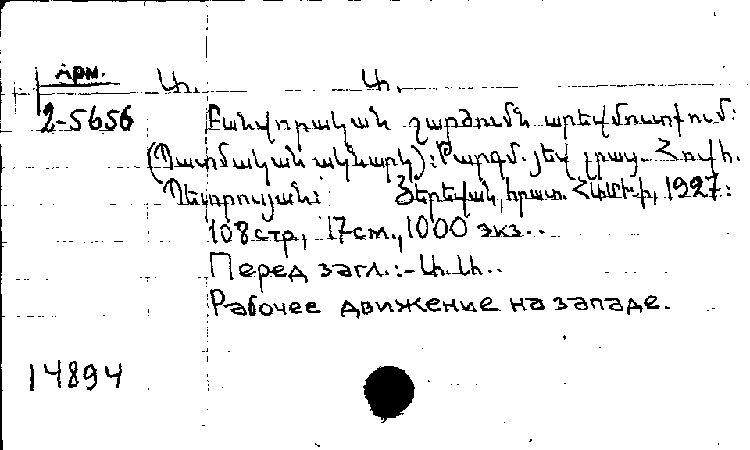 Арм.
Ա. Ա.
2-5656
Բանվորական շարժումն արեվմուտքում:
(Պատմական ակնարկ): Թարգմ. յեվ լրաց. Հովհ.
Պետրոսյան: Յերեվան, հրատ. 1927:
108 стр., 17 см., 1000 экз..
Перед загл.:-Ա. Ա..
Рабочее движение на западе.
14894